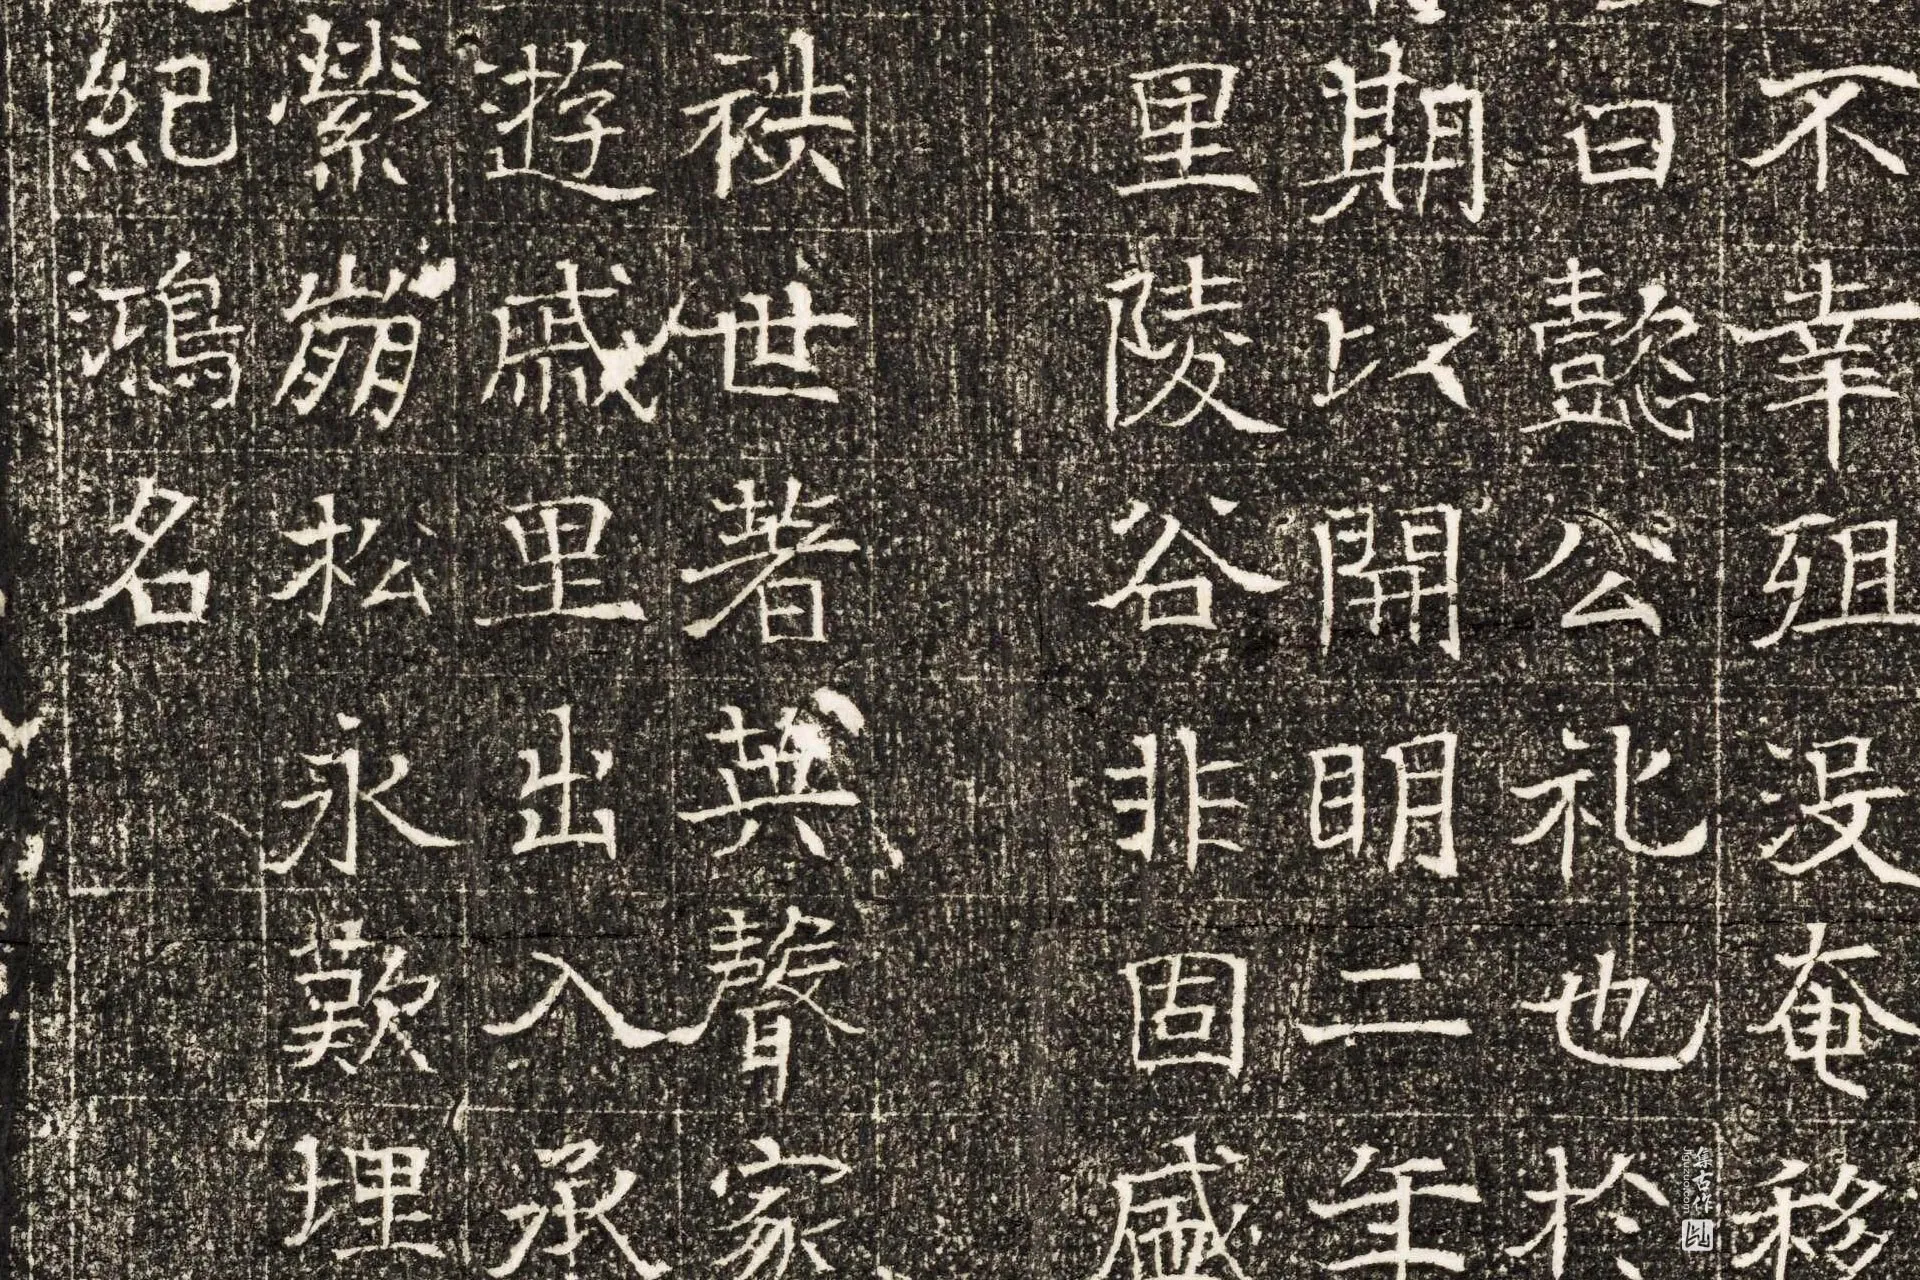 不幸殂没奄移
曰懿公礼也於
期以開明二年
里陵谷非固盛
祑世著英聲家
遊戚里出入承
縈崩松永歎埋
紀鴻名
集古作